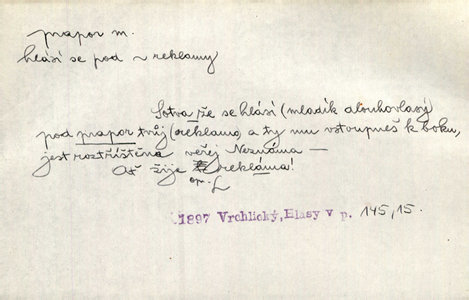 prapor m.
hlásí se pod ~ reklamy
Sotva že se hlásí (mladík dlouhovlasý)
pod prapor tvůj (reklamo) a ty mu vstoupneš k boku,
jest roztříštěna veřej Neznáma —
Ať žije reklama!
op. L
1897 Vrchlický, Hlasy v p. 145, 15.